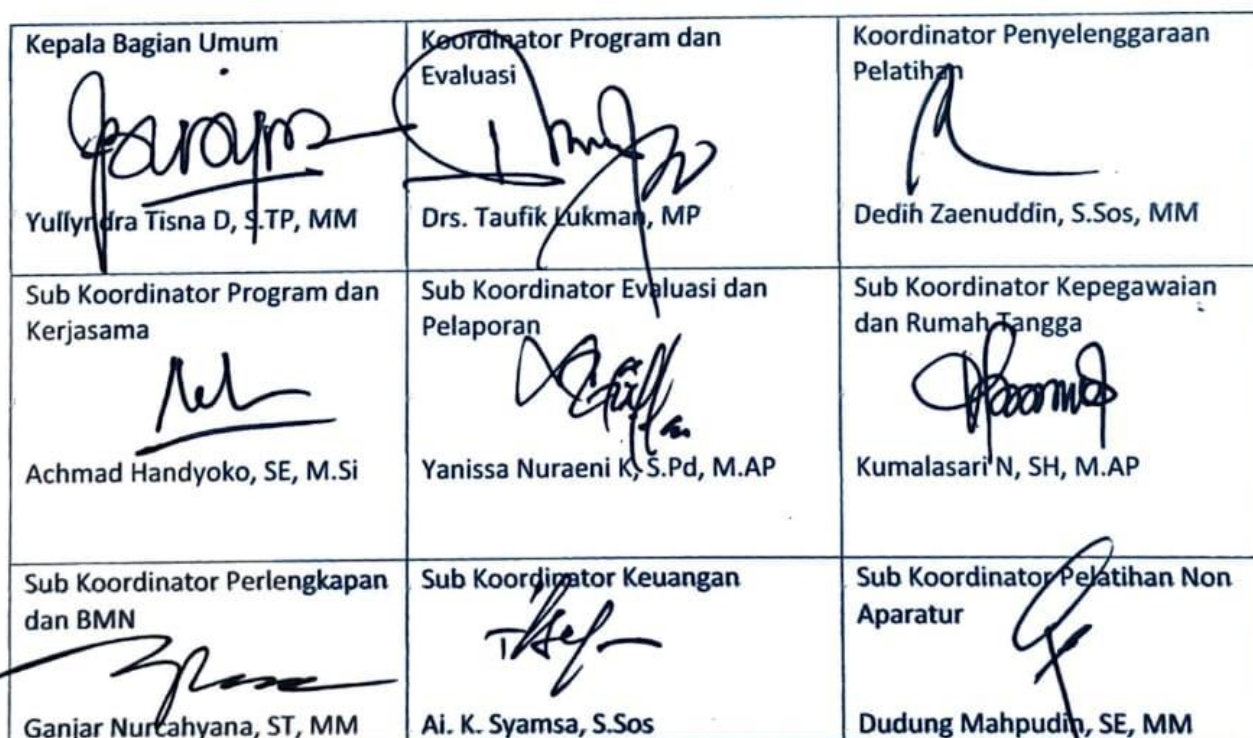 Kepala Bagian Umum
Yullyndra Tisna D, S.TP, MM
Koordinator Program dan
Evaluasi
Drs. Taufik Lukman, MP
Koordinator Penyelenggaraan
Pelatihan
Dedih Zaenuddin, S.Sos, MM
Sub Koordinator Program dan
Kerjasama
Achmad Handyoko, SE, M.Si
Sub Koordinator Evaluasi dan
Pelaporan
Yanissa Nuraeni K, S.Pd, M.AP
Sub Koordinator Kepegawaian
dan Rumah Tangga
Kumalasari N, SH, M.AP
Sub Koordinator Perlengkapan
dan BMN
Ganjar Nurcahyana, ST, MM
Sub Koordinator Keuangan
Ai. K. Syamsa, S.Sos
Sub Koordinator Pelatihan Non
Aparatur
Dudung Mahpudin, SE, MM